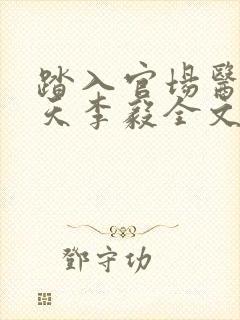 踏入官場醫
天李毅全文
鄧守功